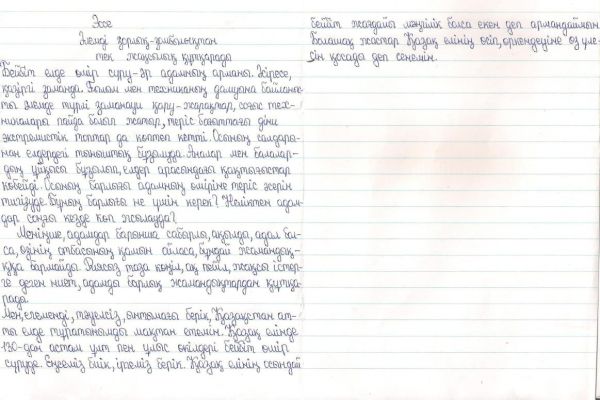 Эссе
Әлемді зорлық-зомбылықтан
тек жақсылық құтқарады
Бейбіт елде өмір сүру-әр адамның арманы. Әсіресе,
қазіргі заманда. Ғылым мен техниканың дамуына байланыс-
ты әлемде түрлі заманауи қару-жарақтар, соғыс тех-
никалары пайда болып жатыр, теріс бағыттағы діни
экстремистік топтар да көптеп кетті. Осының салдары-
нан елдердегі тыныштық бұзылуда. Аналар мен балалар-
дың ұйқысы бұзылып, елдер арасындағы қақтығыстар
көбейді. Осының барлығы адамның өміріне теріс әсерін
тигізуде. Бұның барлығы не үшін керек? Неліктен адам-
дар соңғы кезде көп жылауда?
Меніңше, адамдар барынша сабырлы, ақылды, адал бол-
са, өзінің отбасының қамын ойласа, бұндай жамандық-
қа бармайды. Риясыз таза көңіл, ақ пейіл, жақсы істер-
ге деген ниет, адамды барлық жамандықтардан құтқа-
рады.
Мен, егеменді, тәуелсіз, ынтымағы берік, Қазақстан ат-
ты елде тұратынымды мақтан етемін. Қазақ елінде
130-дан астам ұлт пен ұлыс өкілдері бейбіт өмір
сүруде. Еңсеміз биік, іргеміз берік. Қазақ елінің осындай
бейбіт жағдайы мәңгілік болса екен деп армандаймын.
Болашақ жастар Қазақ елінің өсіп, өркендеуіне өз үле-
сін қосады деп сенемін.